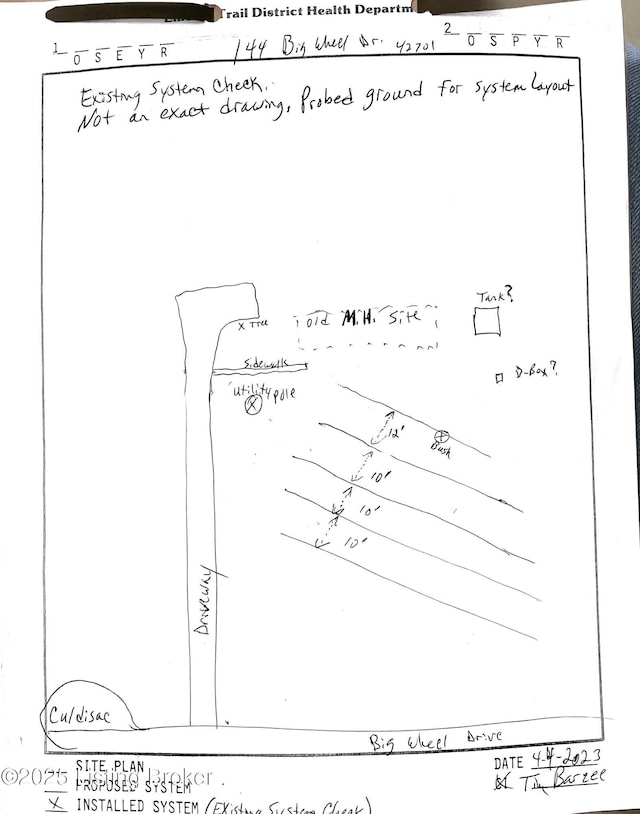 Trail District Health Departm
1 O S E Y R
144 Big Wheel Dr. 42701
2 O S P Y R
Existing System Check.
Not an exact drawing, Probed ground for system Layout
Tank?
X Tree
old M.H. Site
Sidewalk
D-Box?
utility pole
12'
Bush
10'
10'
10'
Driveway
Culdisac
Big Wheel Drive
SITE PLAN
DATE 4-4-2023
©2025 Listing Broker
PROPOSED SYSTEM
X INSTALLED SYSTEM (Existing System Check)